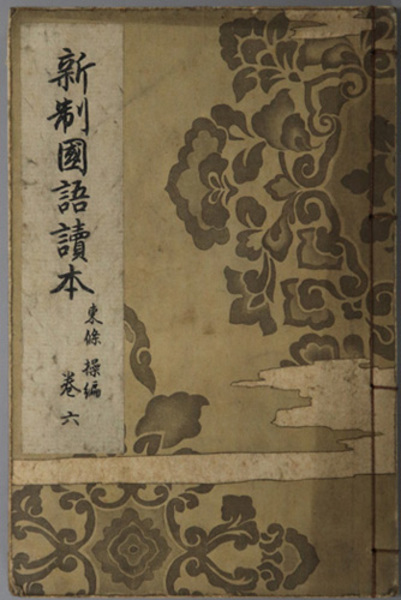 新制國語讀本
東條 操編
卷六